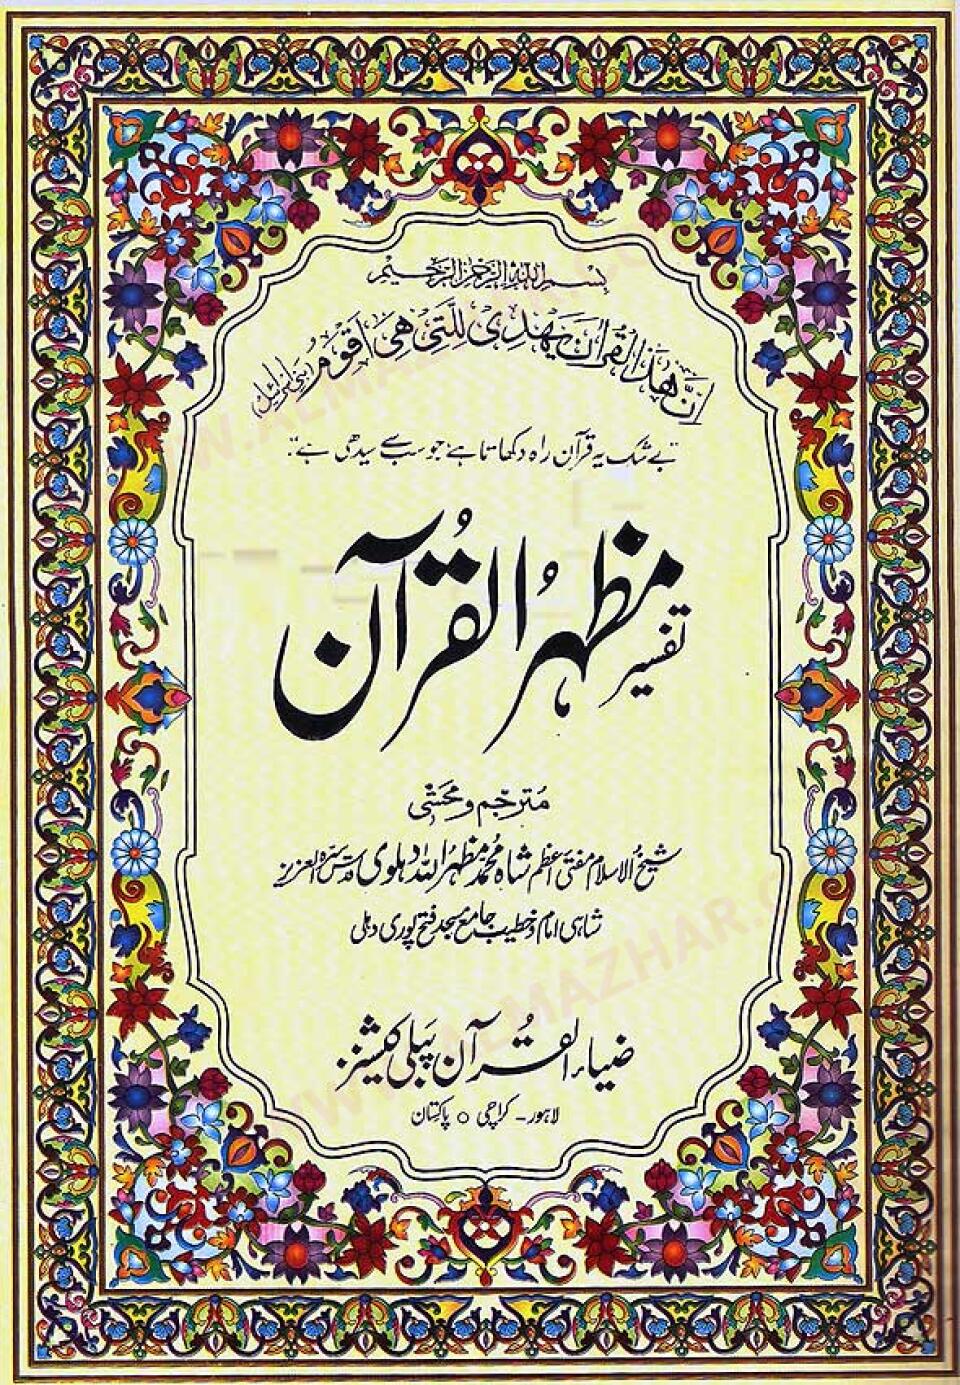 بسم اللہ الرحمن الرحیم
اِنَّ هٰذَا الْقُرْاٰنَ يَهْدِىْ لِلَّتِىْ هِىَ اَقْوَمُ (بنی اسرائیل)
"بے شک یہ قرآن راہ دکھاتا ہے جو سب سے سیدھی ہے"۔
تفسیر مظہرُ القُرآن
مُترجم و محشی
شیخُ الاسلام مفتیٔ اعظم شاہ محمد مظہرُ اللہ دہلوی قدس سرہ العزیز
شاہی امام و خطیب جامع مسجد فتح پوری دہلی
ضیاءُ القُرآن پبلی کیشنز
لاہور - کراچی ○ پاکستان
WWW.ALMAZHAR.COM
WWW.ALMAZHAR.COM